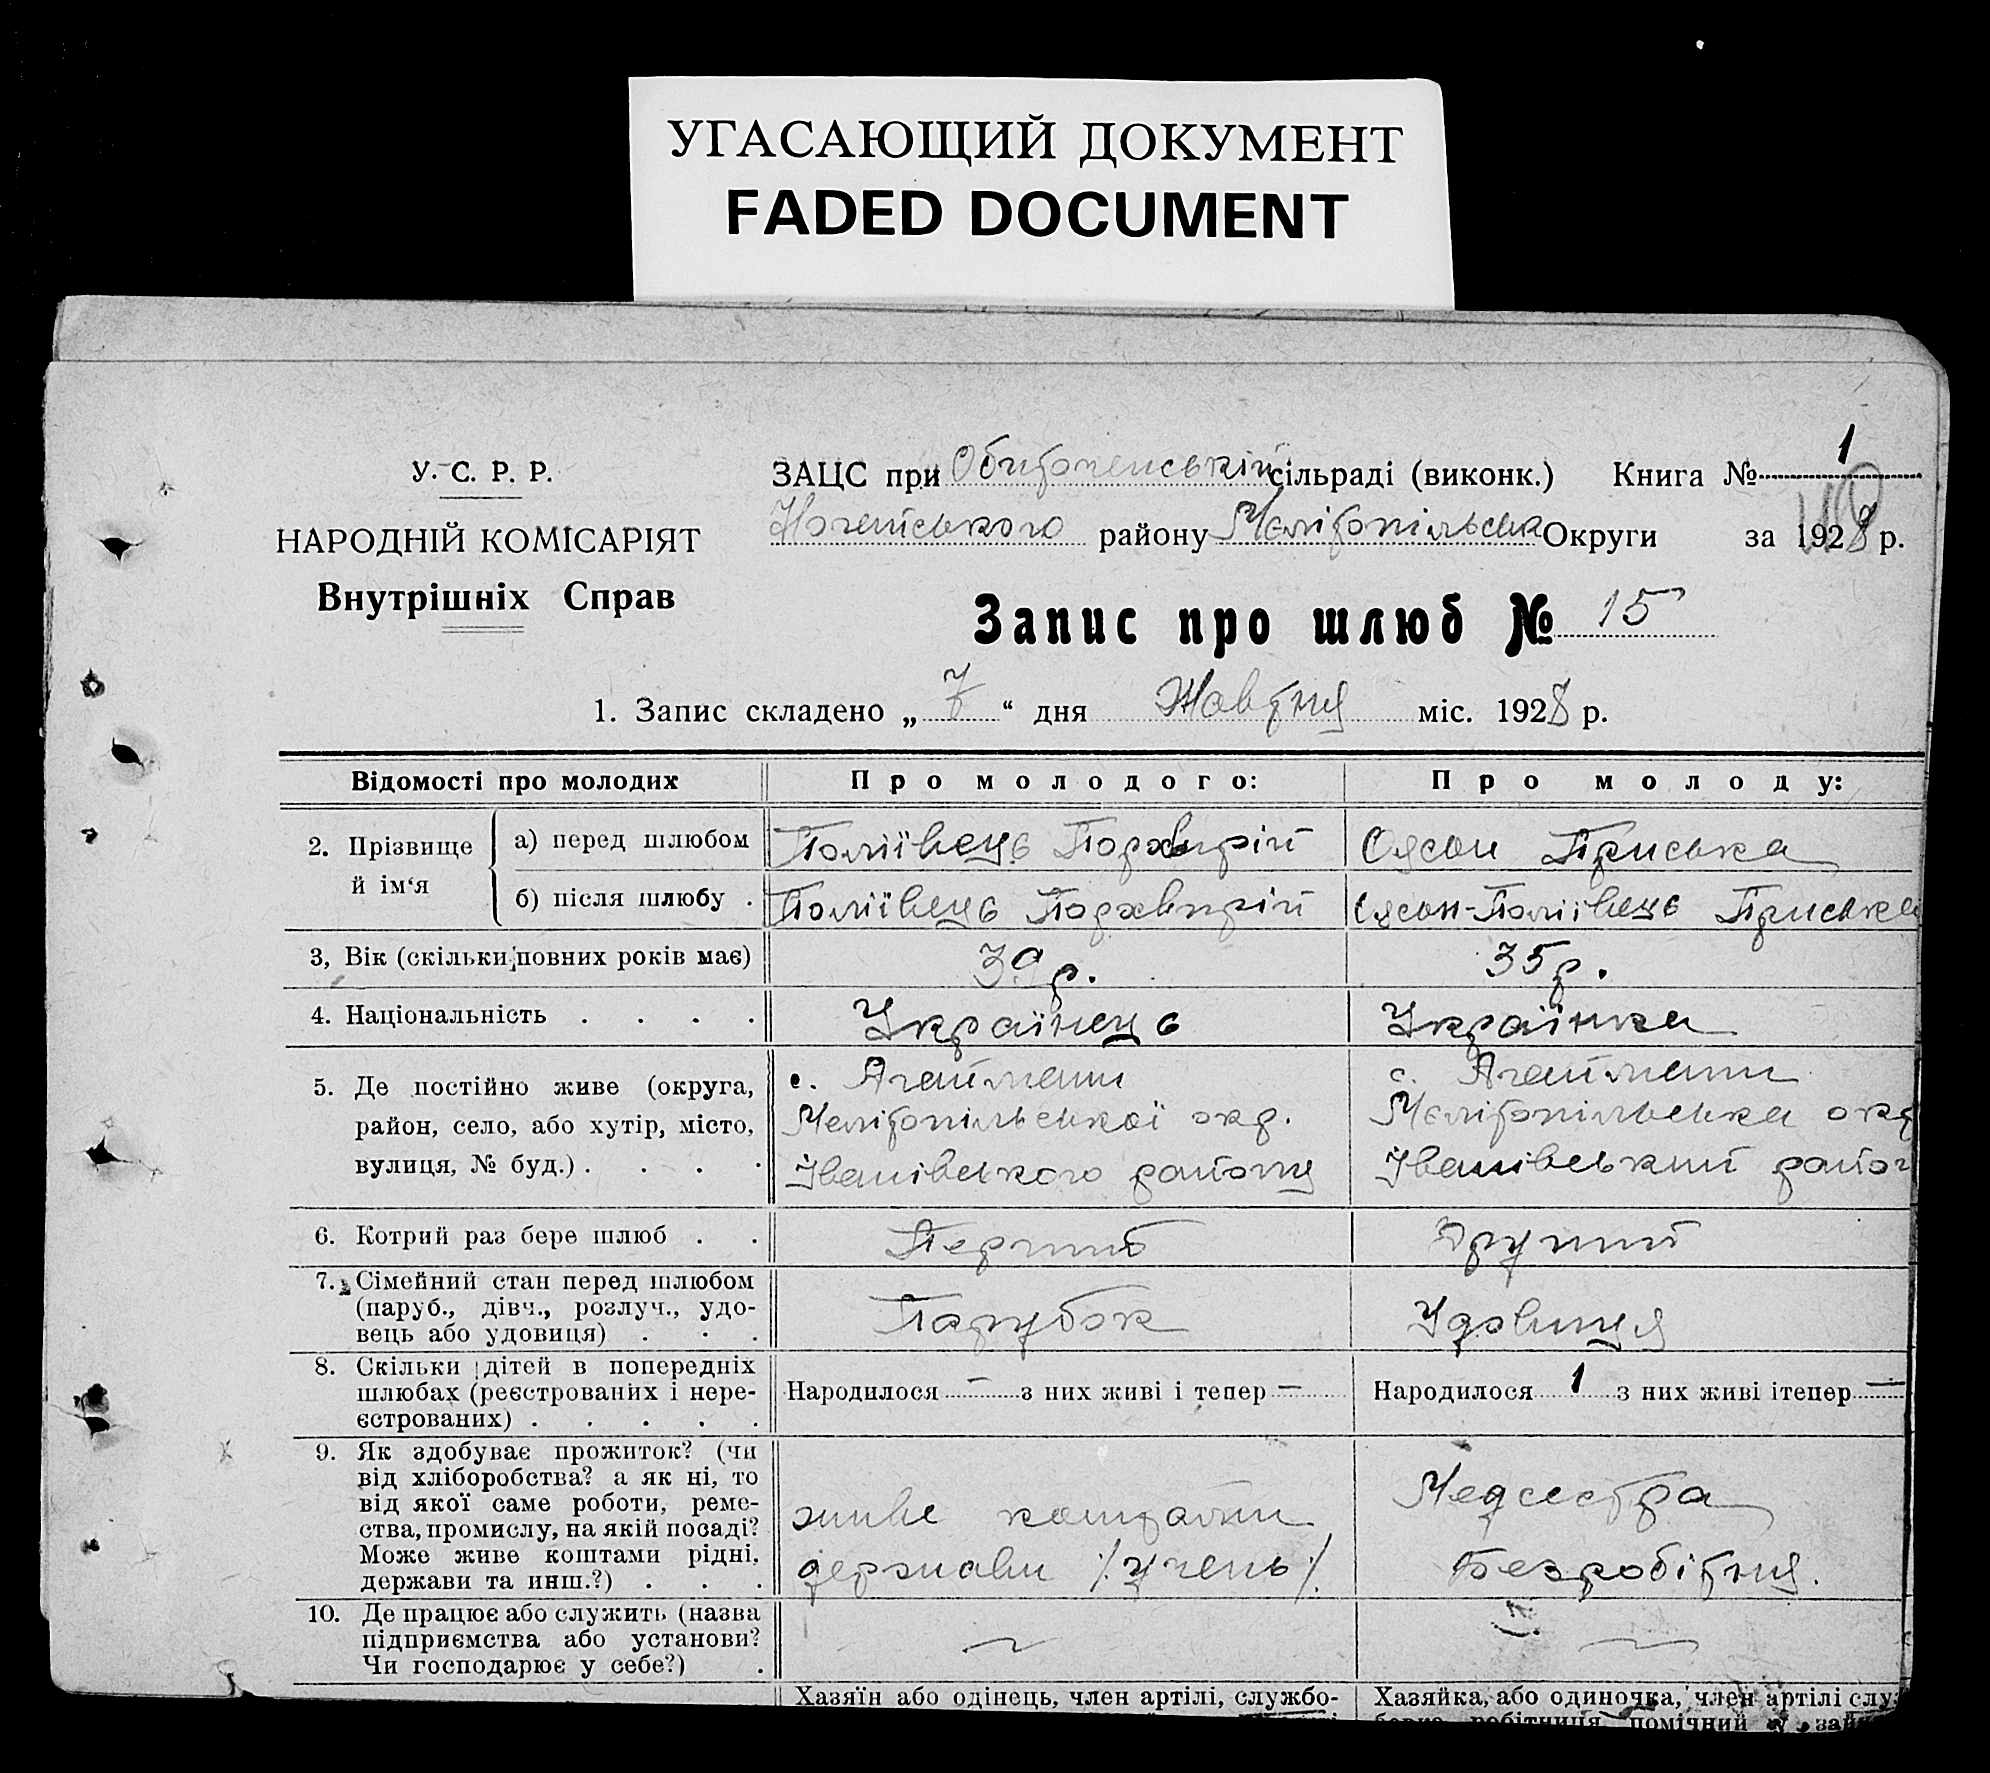 УГАСАЮЩИЙ ДОКУМЕНТ
FADED DOCUMENT
У. С. Р. Р.
НАРОДНІЙ КОМІСАРІЯТ
Внутрішніх Справ
ЗАЦС при Обиточенській сільраді (виконк.) Книга № 1
Ногайського району Мелітопільська Округи за 1928 р.
Запис про шлюб № 15
1. Запис складено „ 7 “ дня Жовтня міс. 1928 р.
Відомості про молодих
Про молодого:
Про молоду:
2. Прізвище й ім‘я
а) перед шлюбом
Поліївець Порхвирій
Приська
б) після шлюбу .
Поліївець Порхвирій
Поліївець Приська
3, Вік (скільки повних років має)
39 р.
35 р.
4. Національність . . . .
Українець
Українка
5. Де постійно живе (округа,
район, село, або хутір, місто,
вулиця, № буд.) . . . .
с. Агаймани
Мелітопільської окр.
Іванівського району
с. Агаймани
Мелітопільська окр
Іванівський район
6. Котрий раз бере шлюб . .
Перший
Другий
7. Сімейний стан перед шлюбом
(паруб., дівч., розлуч., удо-
вець або удовиця) . . .
Парубок
Удовиця
8. Скільки дітей в попередніх
шлюбах (реєстрованих і нере-
єстрованих) . . . . .
Народилося — з них живі і тепер —
Народилося 1 з них живі ітепер —
9. Як здобуває прожиток? (чи
від хліборобства? а як ні, то
від якої саме роботи, реме-
ства, промислу, на якій посаді?
Може живе коштами рідні,
держави та инш.?) . . .
живе коштами
держави /учень/.
Медсестра
Безробітня.
10. Де працює або служить (назва
підприємства або установи?
Чи господарює у себе?) .
Хазяїн або одінець, член артілі, службо-
Хазяйка, або одиночка, член артілі служ
робітниця помічний